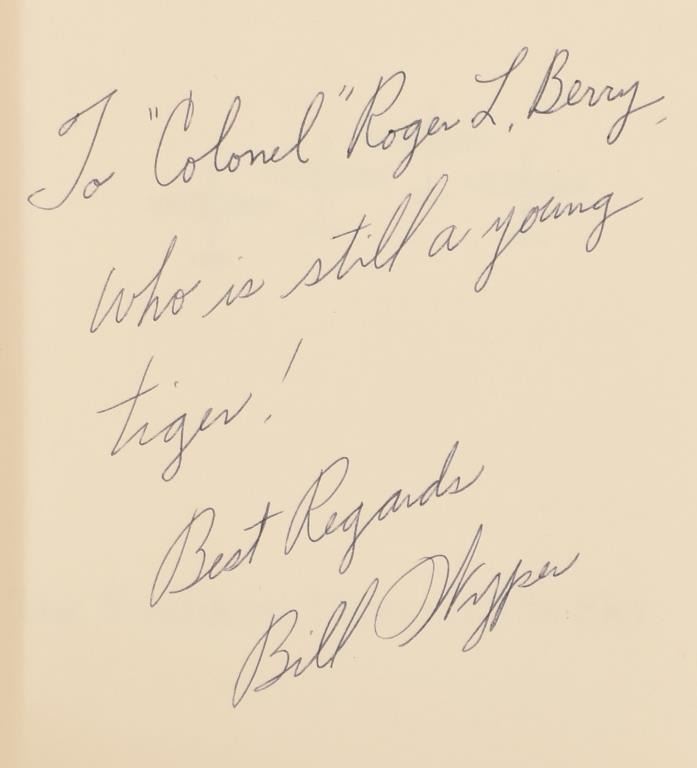 To "Colonel" Roger L. Berry,
Who is still a young
tiger!
Best Regards
Bill Wyper